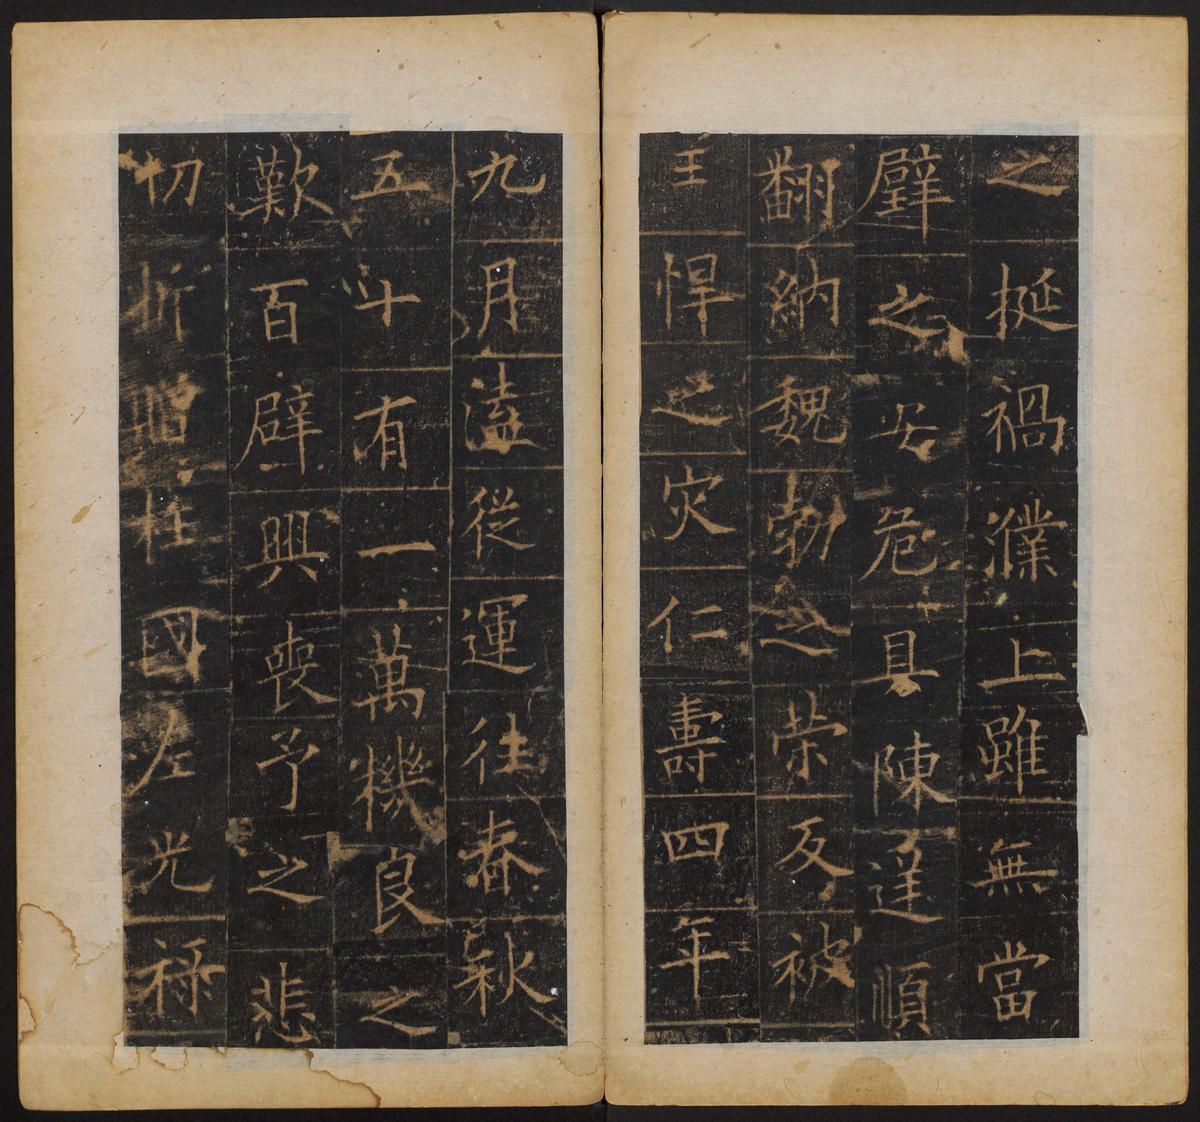 之挻禍濮上雖無當
璧之安危具陳逆順
翻納魏勃之榮反被
王悍之灾仁壽四年
九月溘從運往春秋
五十有一萬機良之
歎百辟興喪予之悲
切贈柱國左光禄